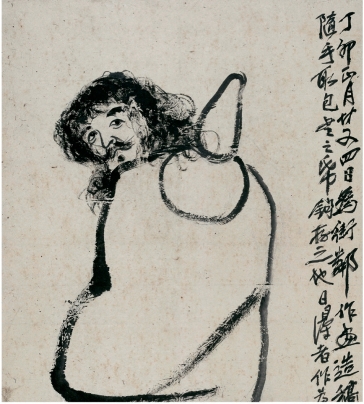 丁卯正月廿又四日為街鄰作畫造稿
隨手取包書之帋鉤存之他日得者作為